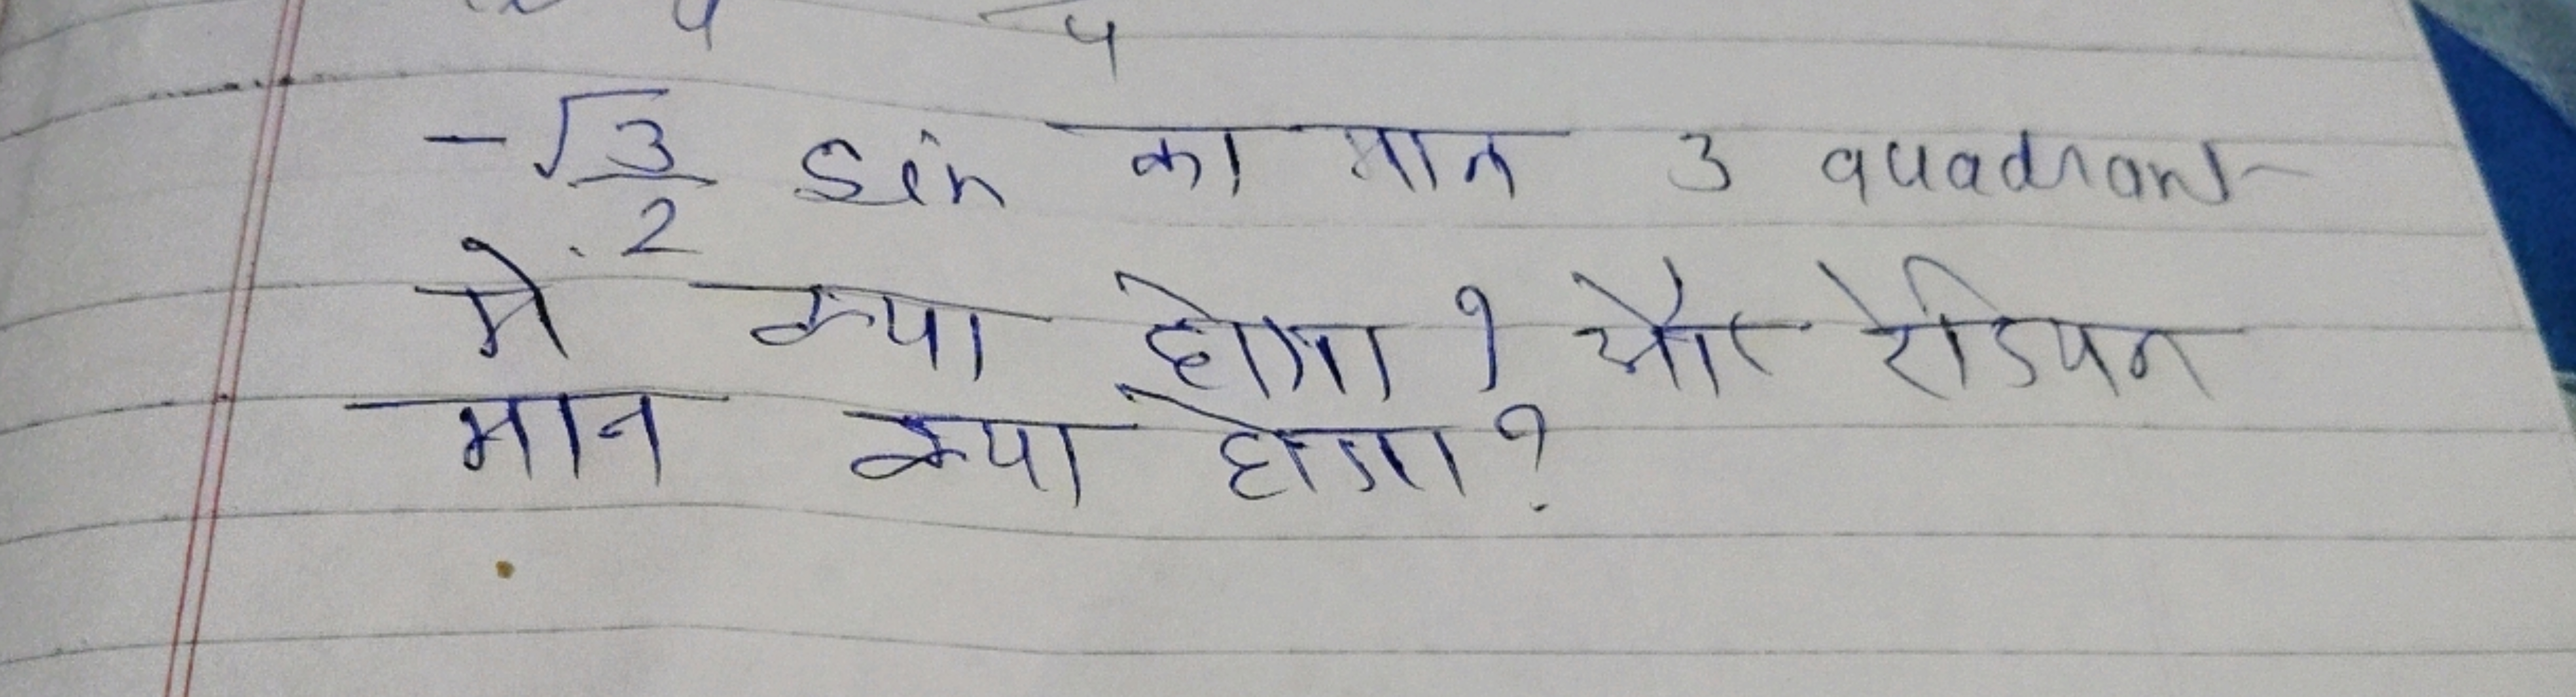 4
-√3/2 sin का मान 3 quadrant
मे क्या होगा ? और रेडियन
मान क्या होगा ?